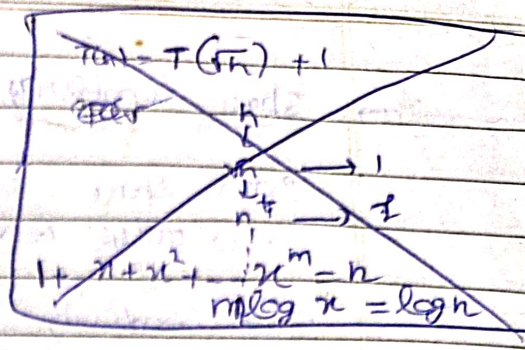 T(n) = T(√n) + 1
n
↓
√n → 1
↓
n^¼ → 1
1 + x + x² + ... x^m = n
m log x = log n